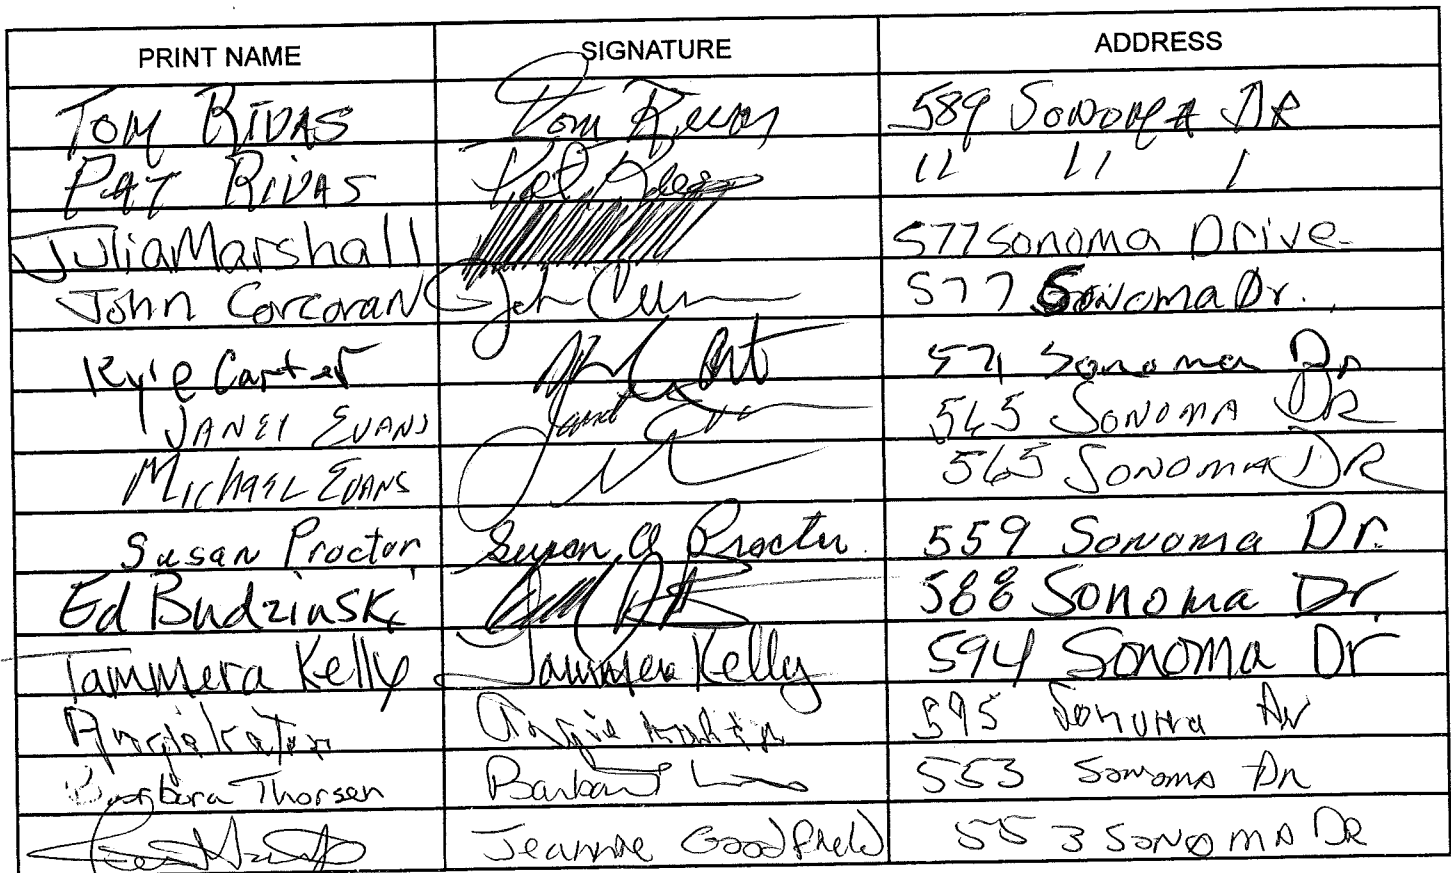 PRINT NAME SIGNATURE ADDRESS
TOM RIVAS Tom Rivas 589 SONOMA DR
PAT RIVAS Pat Rivas 11 11 1
Julia Marshall 577 Sonoma Drive
John Corcoran John 577 Sonoma Dr.
Kyle Carter 571 Sonoma Dr
JANET EVANS Janet 565 SONOMA DR
MICHAEL EVANS 565 SONOMA DR
Susan Proctor Susan Proctor 559 Sonoma Dr.
Ed Budzinski 588 Sonoma Dr.
Tammera Kelly Tammera Kelly 594 Sonoma Dr
Angie Angie 595 Sonoma
Barbara Thorsen Barbara 553 Sonoma Dr
Jeanne Goodfield 553 SONOMA DR